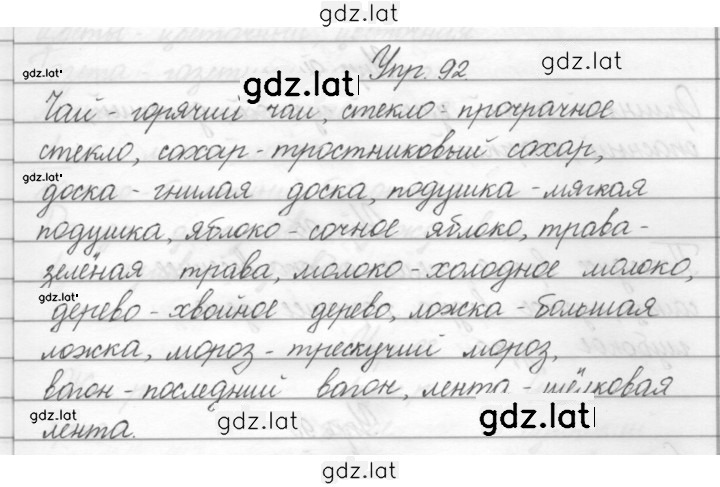 gdz.lat
gdz.lat
gdz.lat Упр. 92 gdz.lat
Чай - горячий чай, стекло - прозрачное
стекло, сахар - тростниковый сахар,
gdz.lat
доска - гнилая доска, подушка - мягкая
подушка, яблоко - сочное яблоко, трава -
зелёная трава, молоко - холодное молоко,
gdz.lat
дерево - хвойное дерево, ложка - большая
ложка, мороз - трескучий мороз,
вагон - последний вагон, лента - шёлковая
gdz.lat gdz.lat gdz.lat
лента.
gdz.lat